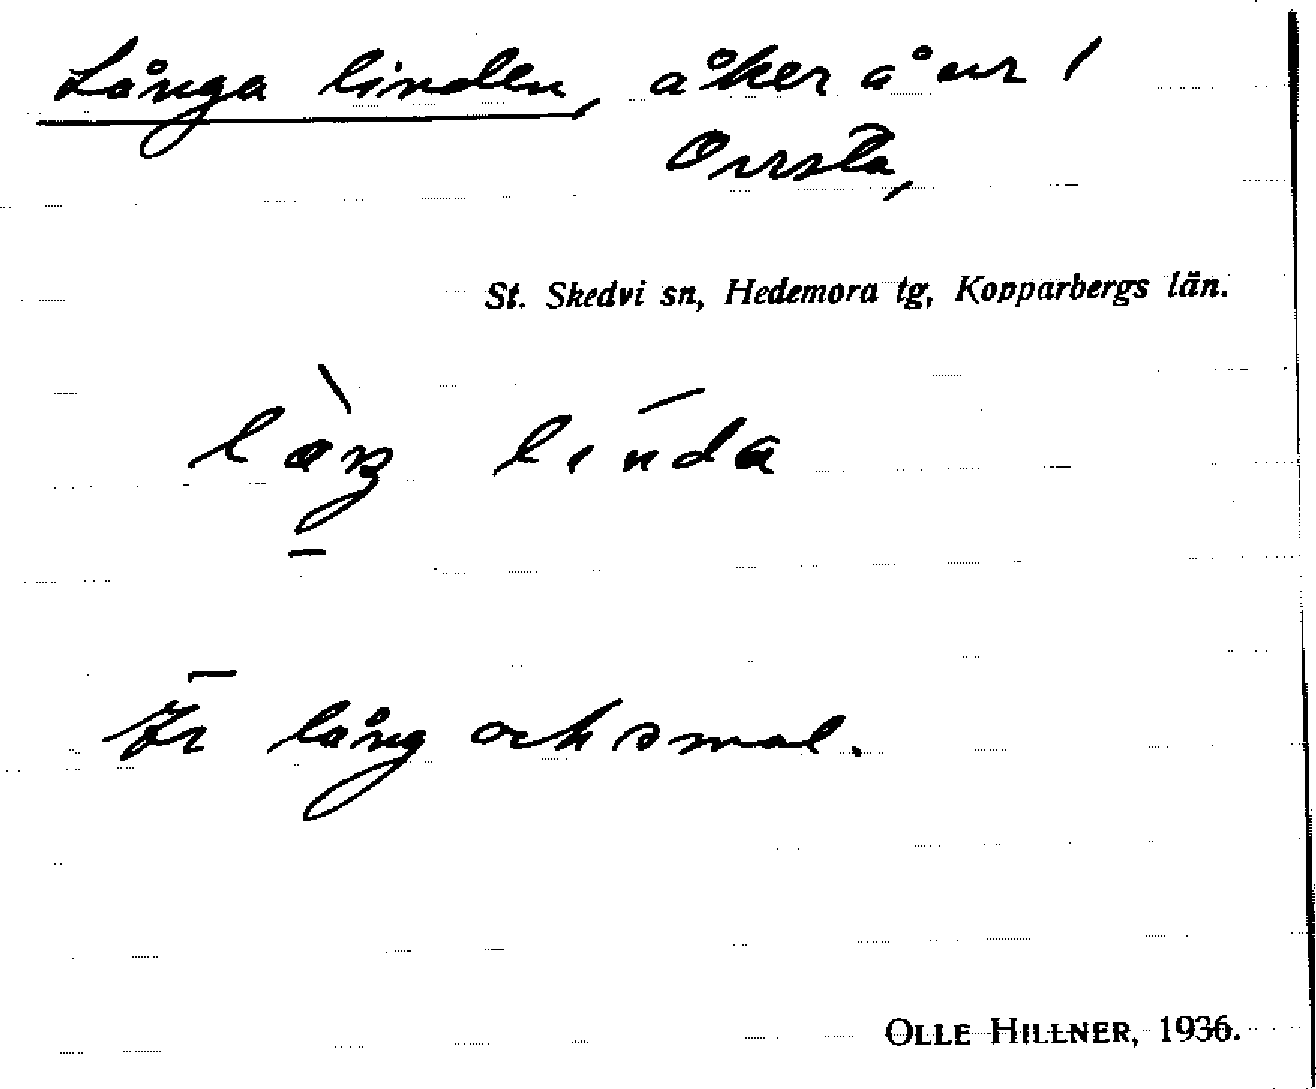 Långa linden, åker å nr 1
Orrsta,
St. Skedvi sn, Hedemora tg, Kopparbergs län.
linda
Är lång och smal.
OLLE HILLNER, 1936.